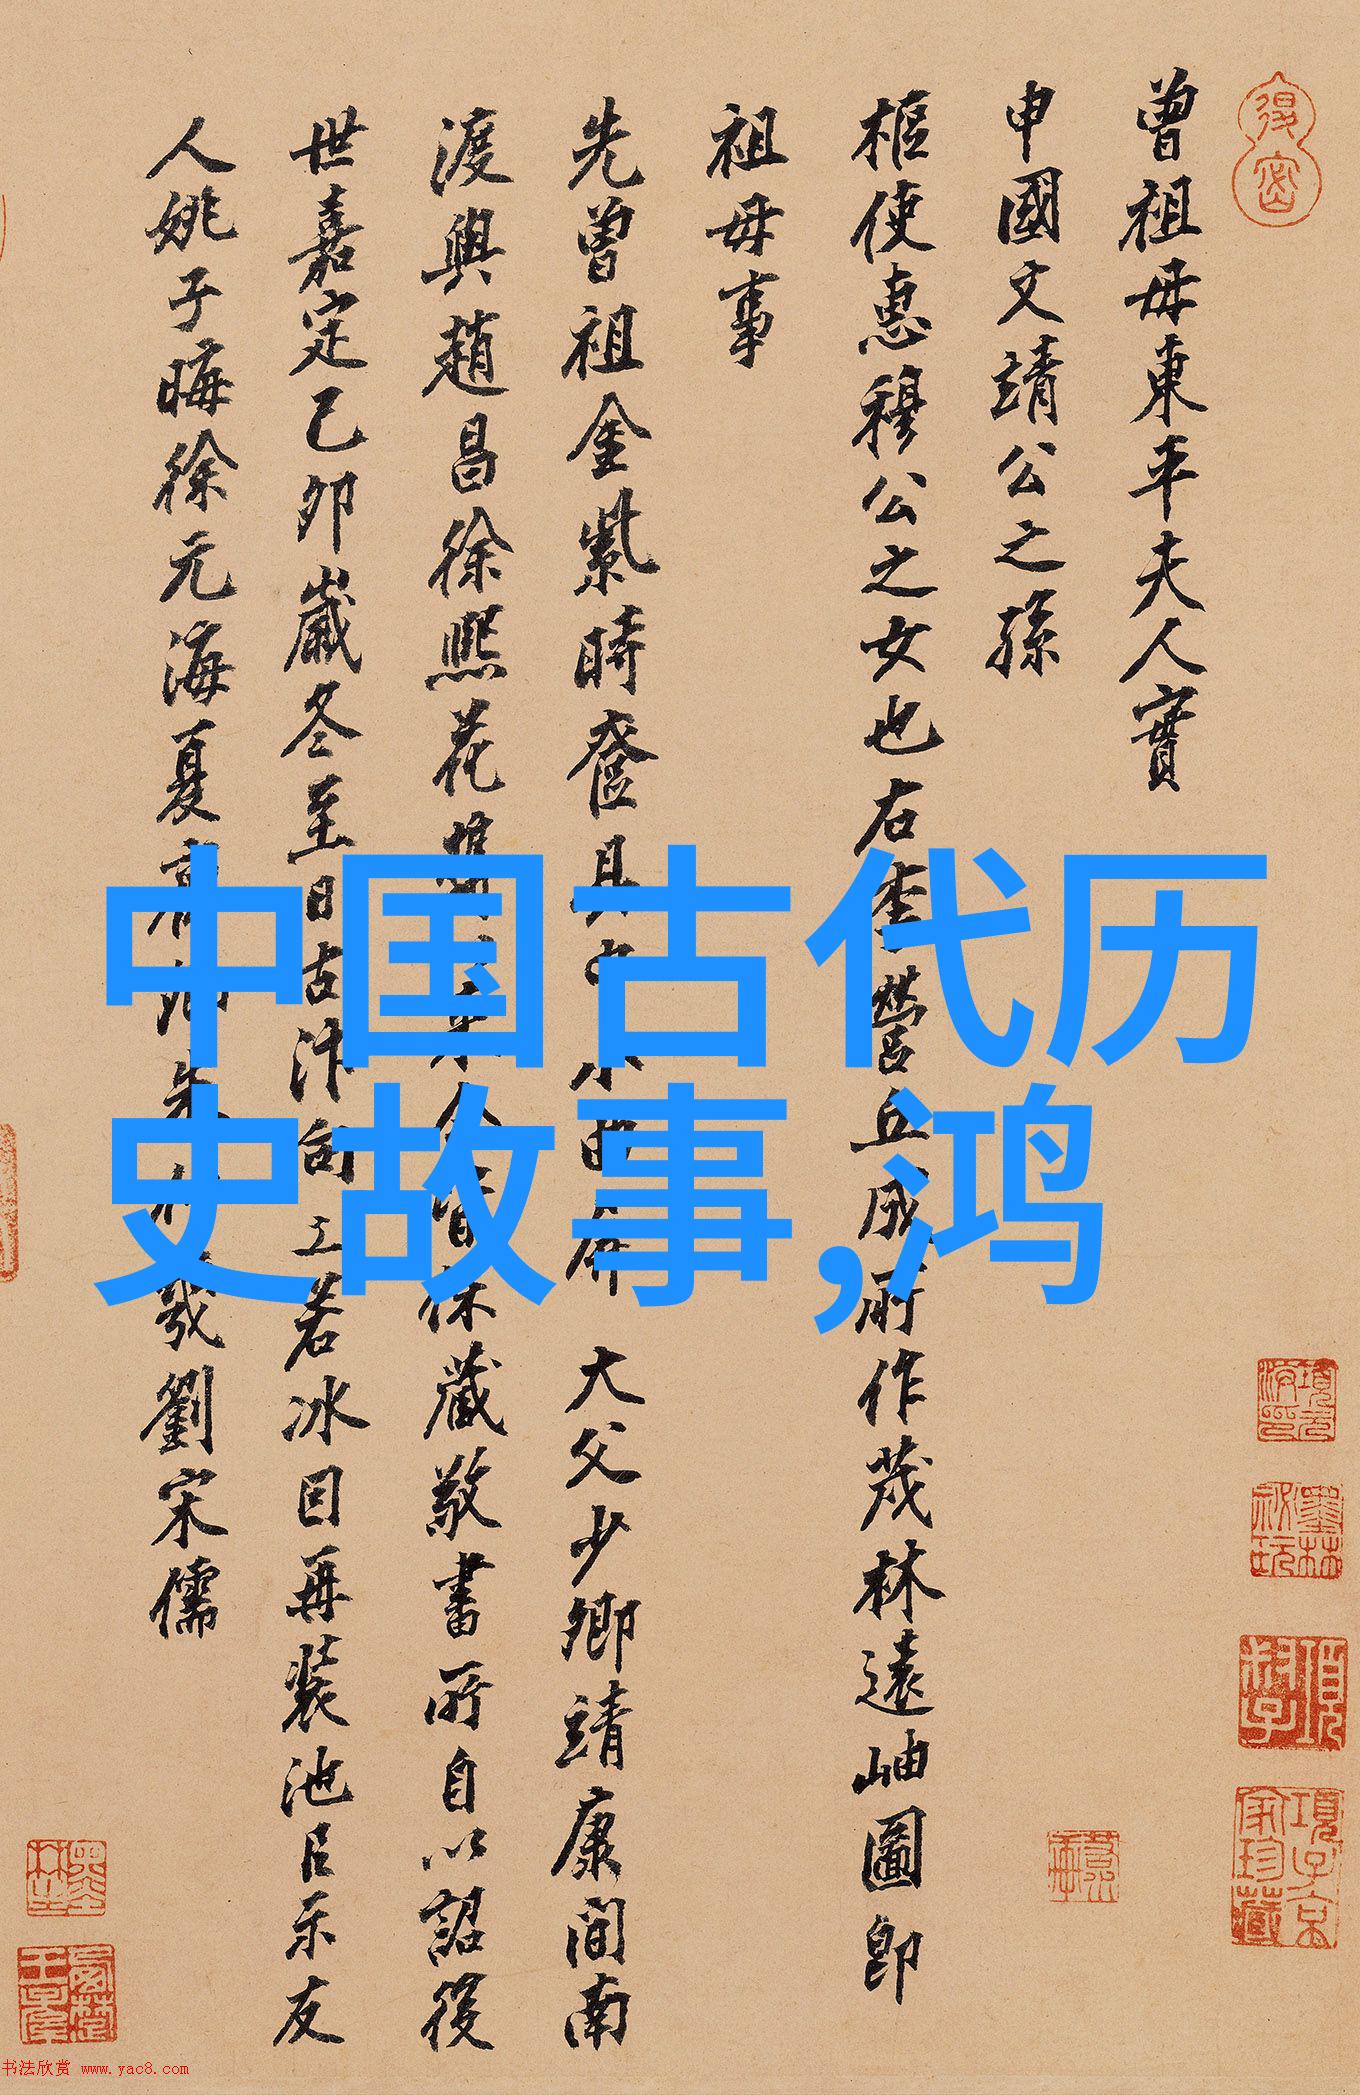 曾祖母東平夫人實
申國文靖公之孫
樞使惠穆公之女也右李營丘咸所作茂林遠岫圖即
祖母事
先曾祖金紫時奩具中小曲屏 大父少卿靖康間南
渡與趙昌徐熙花
藏敬書所自以詔後
世嘉定己卯歲冬至日古汴向士若冰因再裝池呂示友
人姚子晦徐元海夏
劉宋儒
中国古代历
史故事,鸿
復密
書法欣賞 www.yac8.com